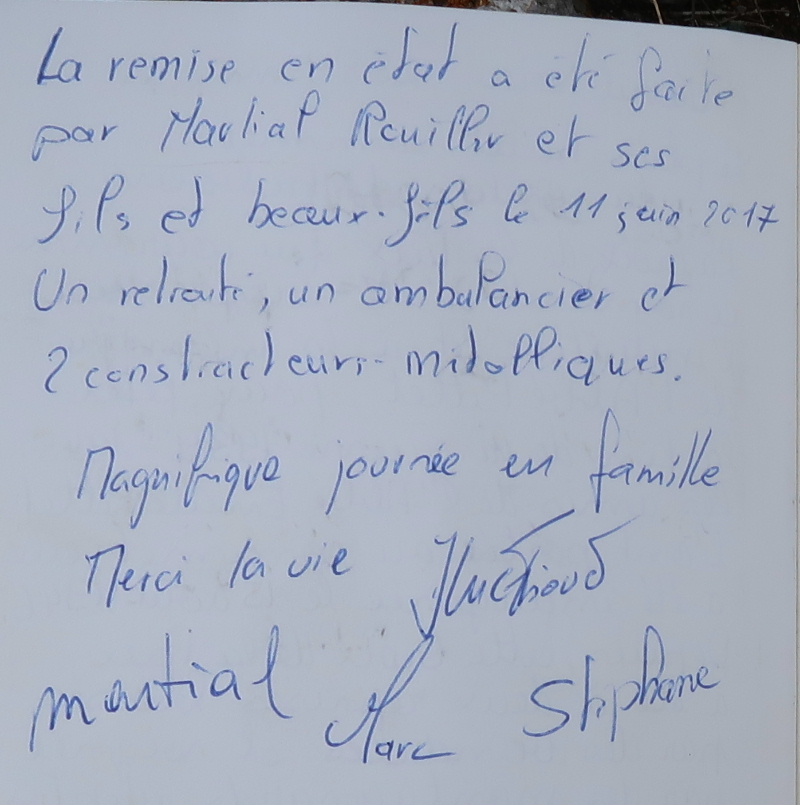 La remise en état a été faite
par Martial Rouiller et ses
fils et beaux-fils le 11 juin 2017
Un retraité, un ambulancier et
2 constructeurs-métalliques.
Magnifique journée en famille
Merci la vie
martial Marc Stéphane